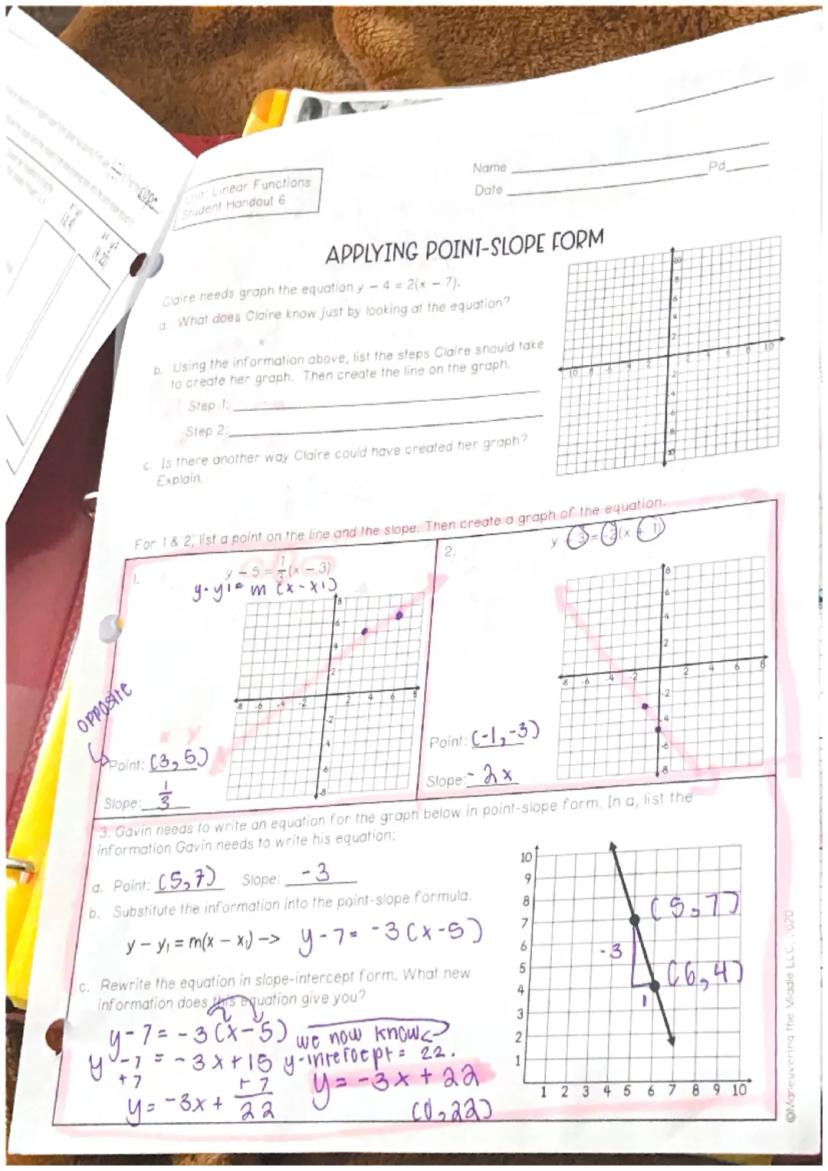 Name
Pd
Date
Unit: Linear Functions
Student Handout 6
APPLYING POINT-SLOPE FORM
Claire needs graph the equation y – 4 = 2(x – 7).
a. What does Claire know just by looking at the equation?
b. Using the information above, list the steps Claire should take
to create her graph. Then create the line on the graph.
Step 1:
Step 2:
c. Is there another way Claire could have created her graph?
Explain.
For 1 & 2, list a point on the line and the slope. Then create a graph of the equation.
1.
y – 5 = 1/3(x – 3)
y-y1= m (x-x1)
opposite
x y
Point: (3,5)
Slope: 1/3
2.
y + 3 = -2(x + 1)
Point: (-1,-3)
Slope: -2x
3. Gavin needs to write an equation for the graph below in point-slope form. In a, list the
information Gavin needs to write his equation:
a. Point: (5,7) Slope: -3
b. Substitute the information into the point-slope formula.
y – y1 = m(x – x1) –> y-7= -3(x-5)
c. Rewrite the equation in slope-intercept form. What new
information does this equation give you?
y-7= -3(x-5) we now know
y-7 = -3x+15 y-intercept = 22.
+7 +7
y= -3x+ 22
y= -3x+22
(0,22)
10
9
8
7
6
5
4
3
2
1
1 2 3 4 5 6 7 8 9 10
(5,7)
-3
(6,4)
1
©Maneuvering the Middle LLC, 2020